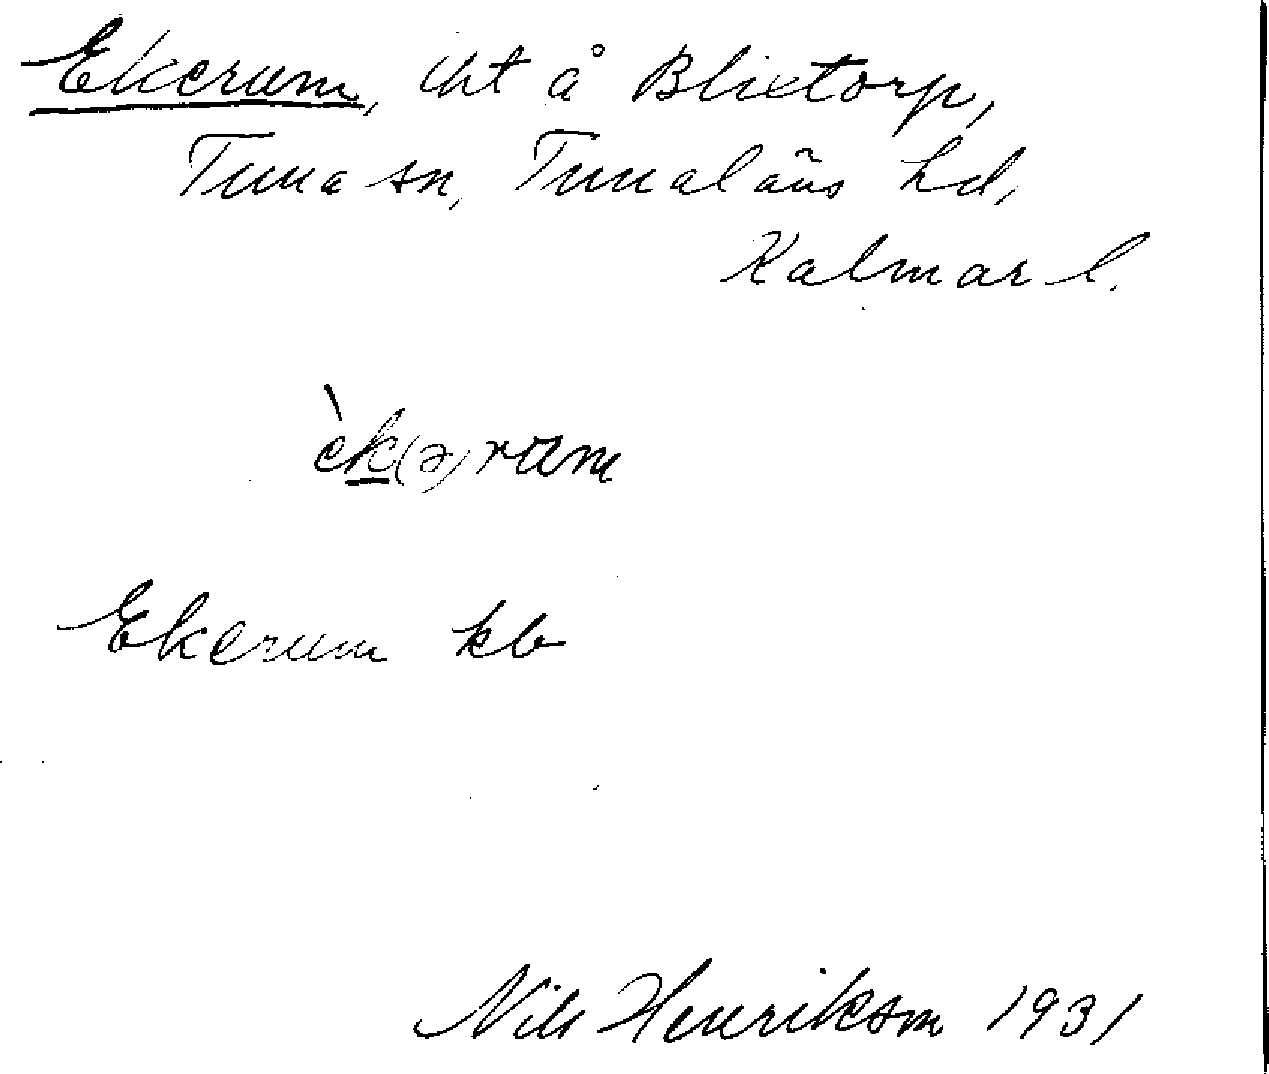 Ekerum, lht å Blixtorp,
Tuna sn, Tunaläns hd,
Kalmar l.
èk(ə)rum
Ekerum kb
Nils Henrikson 1931